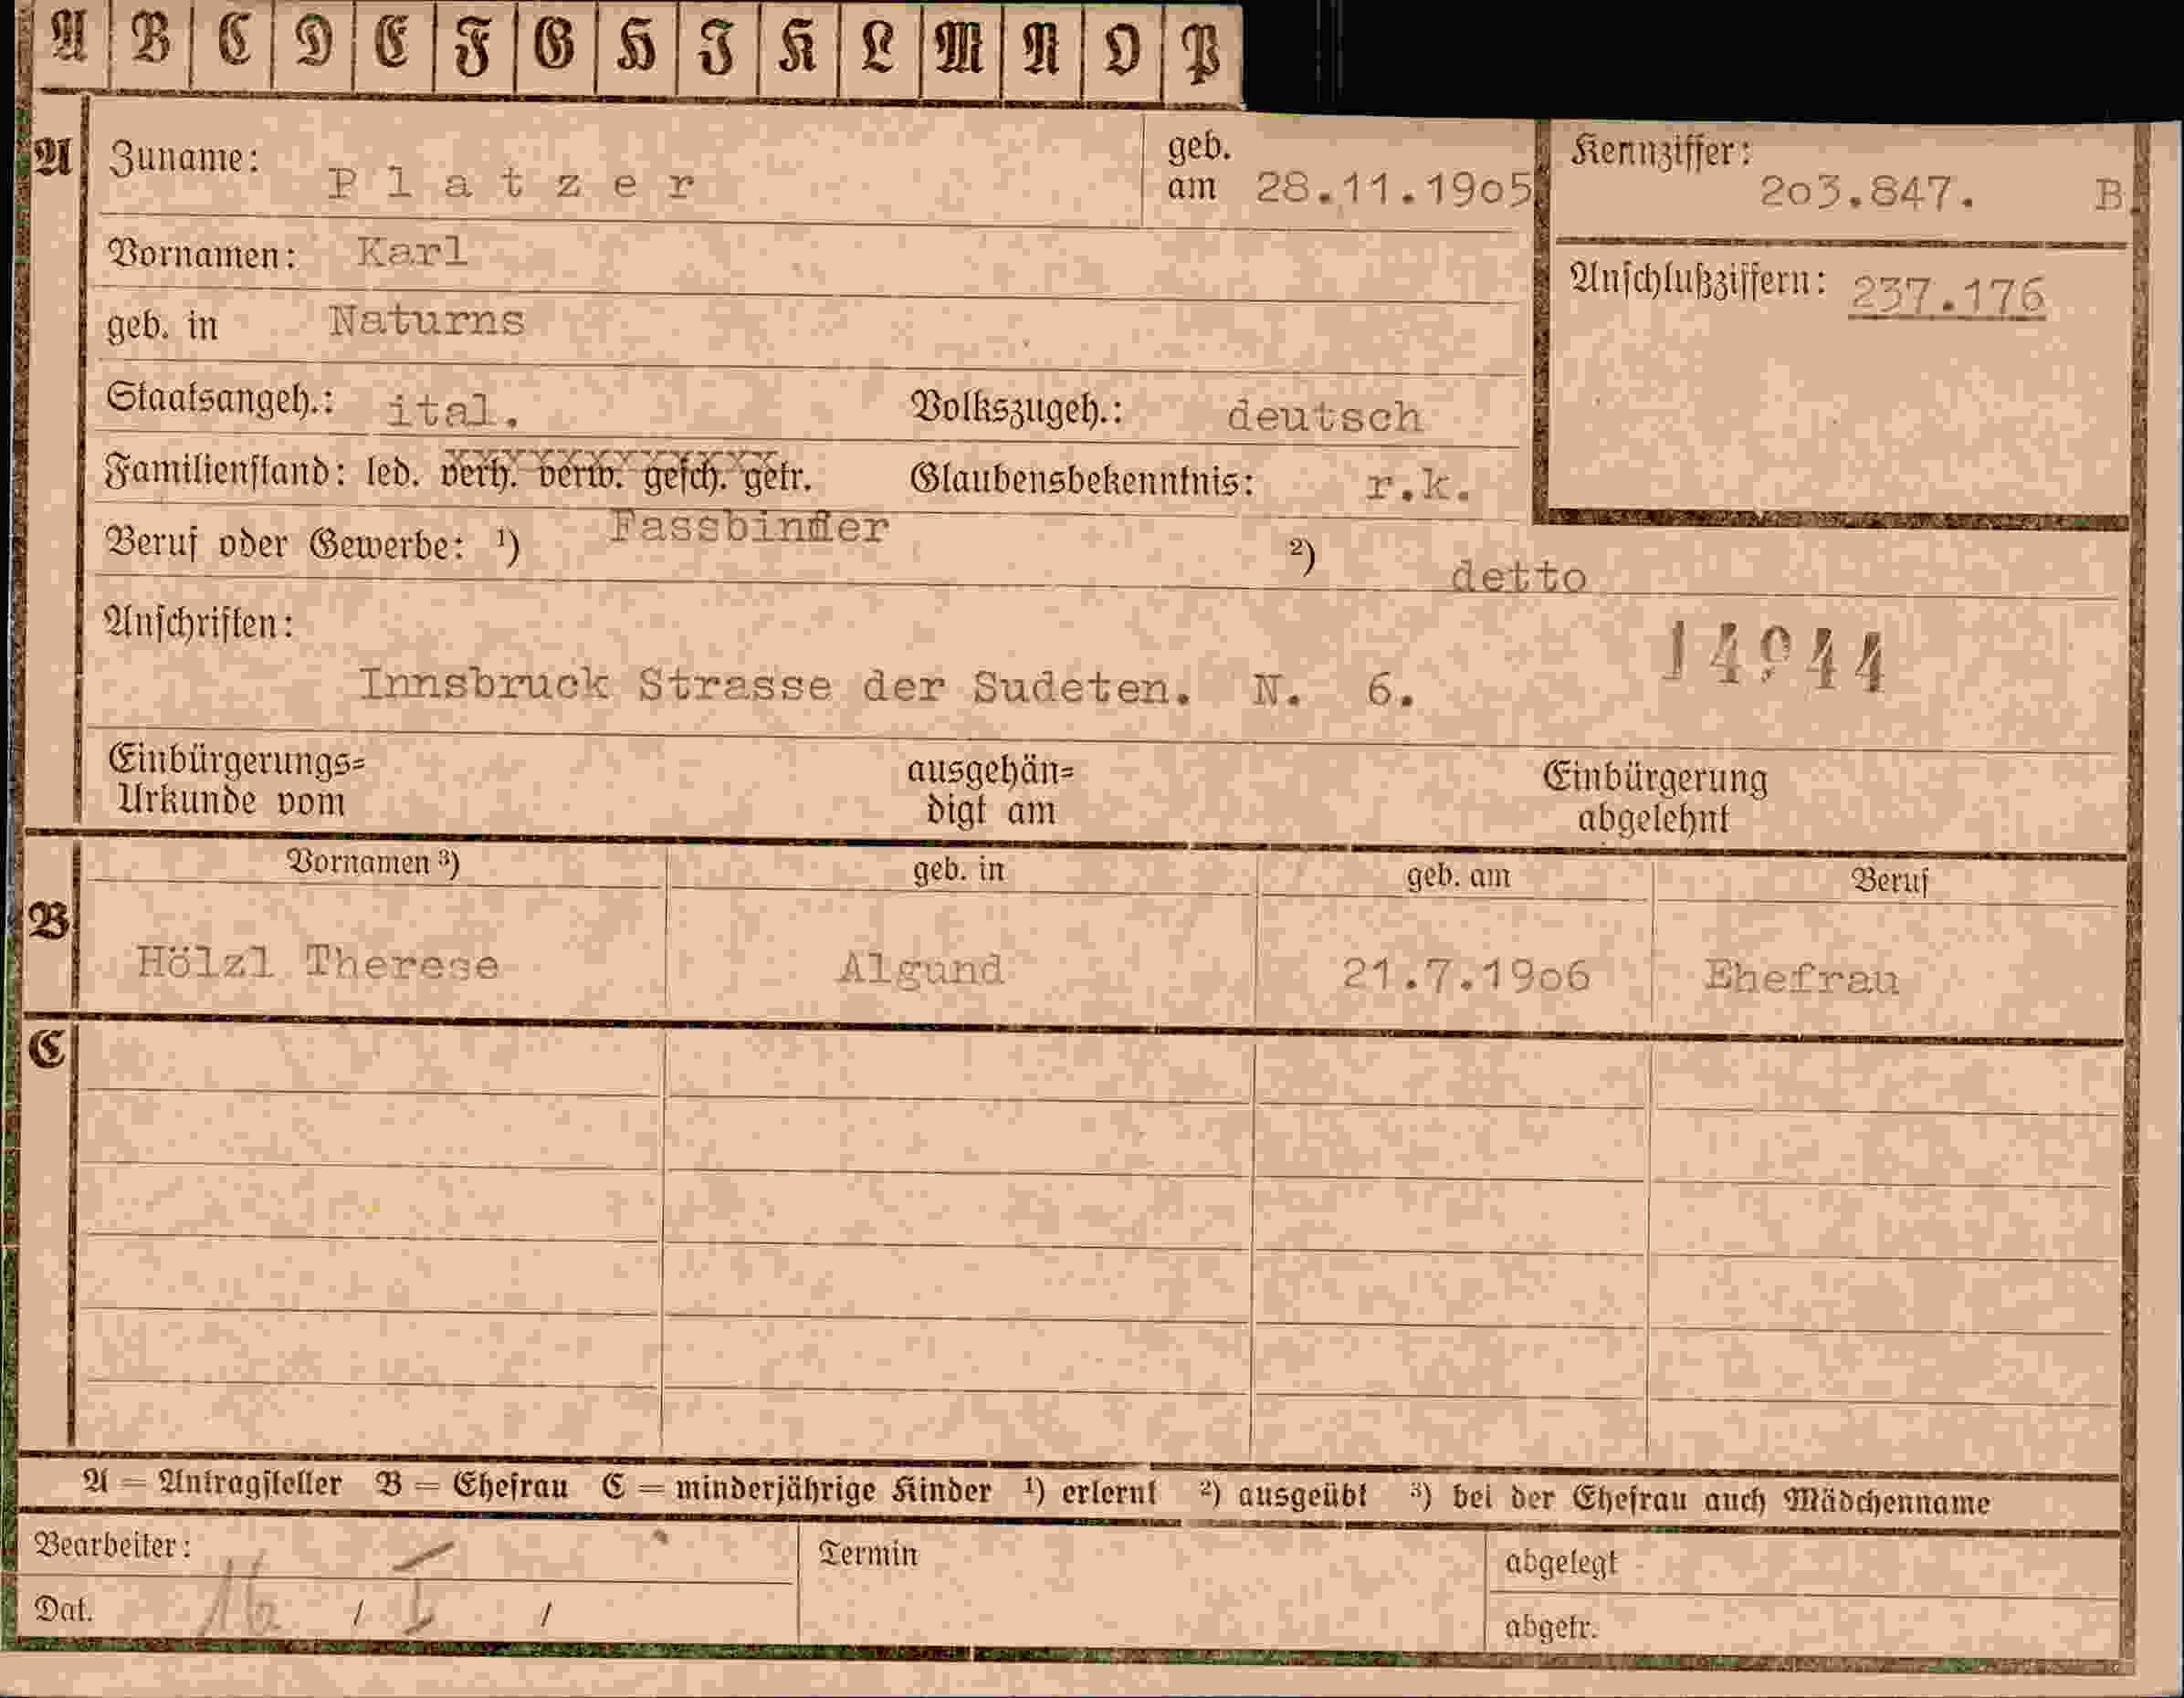 A B C D E F G H J K L M N O P
A Zuname: Platzer geb. am 28.11.19o5 Kennziffer: 2o3.847. B.
Vornamen: Karl
Anschlußziffern: 237.176
geb. in Naturns
Staatsangeh.: ital. Volkszugeh.: deutsch
Familienstand: led. verh. verw. gesch. getr. Glaubensbekenntnis: r.k.
Beruf oder Gewerbe: ¹) Fassbinder ²) detto
Anschriften:
14944
Innsbruck Strasse der Sudeten. N. 6.
Einbürgerungs= ausgehän= Einbürgerung
Urkunde vom digt am abgelehnt
Vornamen ³) geb. in geb. am Beruf
B
Hölzl Therese Algund 21.7.19o6 Ehefrau
C
A = Antragsteller B = Ehefrau C = minderjährige Kinder ¹) erlernt ²) ausgeübt ³) bei der Ehefrau auch Mädchenname
Bearbeiter: Termin abgelegt
Dat. 16 / I / abgetr.